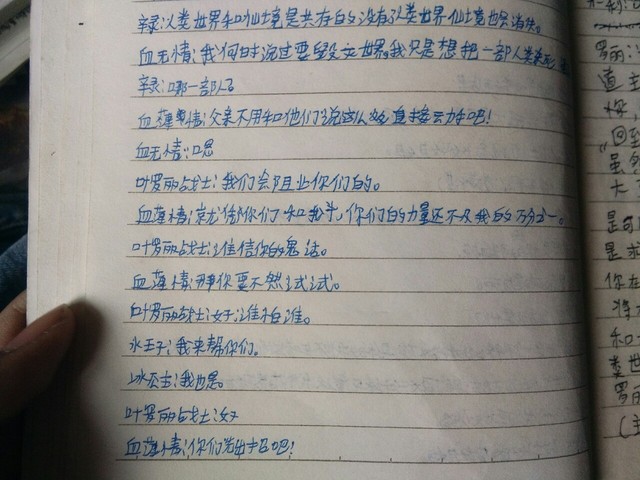 辛录:人类世界和仙境是共存的没有人类世界仙境也会消失。
血无情:我何时说过要毁灭世界,我只是想把一部人类
辛录:哪一部人
血薄情:父亲不用和他们说这么 直接云力手吧!
血无情:嗯
叶罗丽战士:我们会阻止你们的。
血薄情:就凭你们和我斗,你们的力量还不及我的万分之一。
叶罗丽战士:谁信你的鬼话。
血薄情:那你要不然试试。
叶罗丽战士:好:谁怕谁。
水王子:我来帮你们。
冰公主:我也是。
叶罗丽战士:好
血薄情:你们先出招吧!
罗丽:
直
"回到
虽然
大
是可
是求
你在
将
和
类世
罗丽